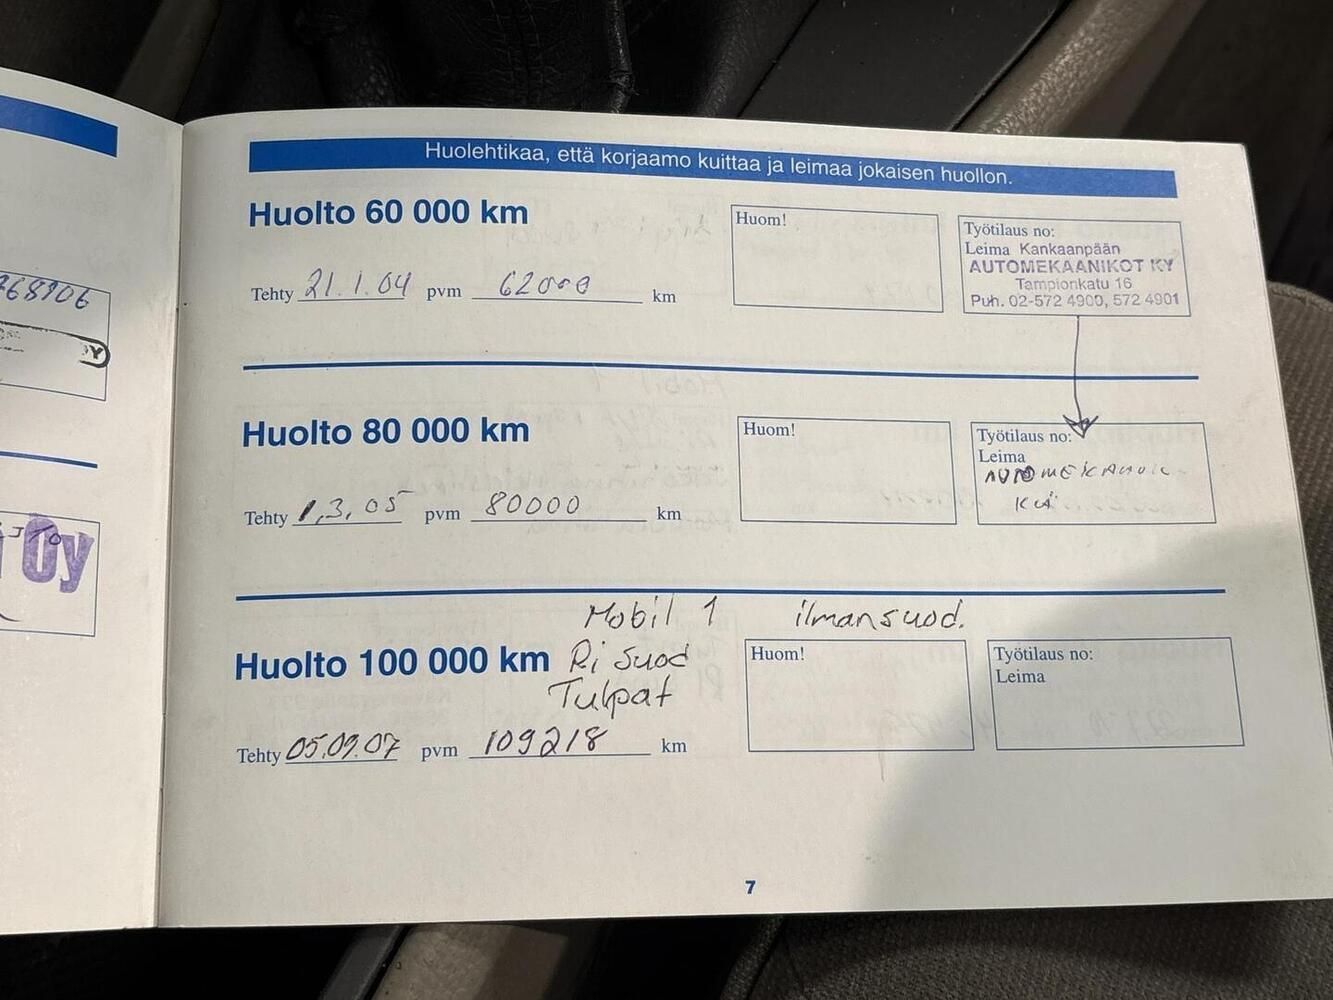 768906
Oy
Huolehtikaa, että korjaamo kuittaa ja leimaa jokaisen huollon.
Huolto 60 000 km
Tehty 21.1.04 pvm 62000 km
Huom!
Työtilaus no:
Leima Kankaanpään
AUTOMEKAANIKOT KY
Tampionkatu 16
Puh. 02-572 4900, 572 4901
Huolto 80 000 km
Tehty 1,3,05 pvm 80000 km
Huom!
Työtilaus no:
Leima
Mobil 1 ilmansuod.
Huolto 100 000 km Ri Suod
Tulpat
Tehty 05.09.07 pvm 109218 km
Huom!
Työtilaus no:
Leima
7